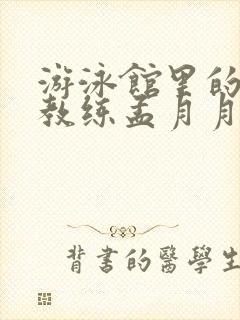 游泳館里的
教练孟月月
背書的醫學生